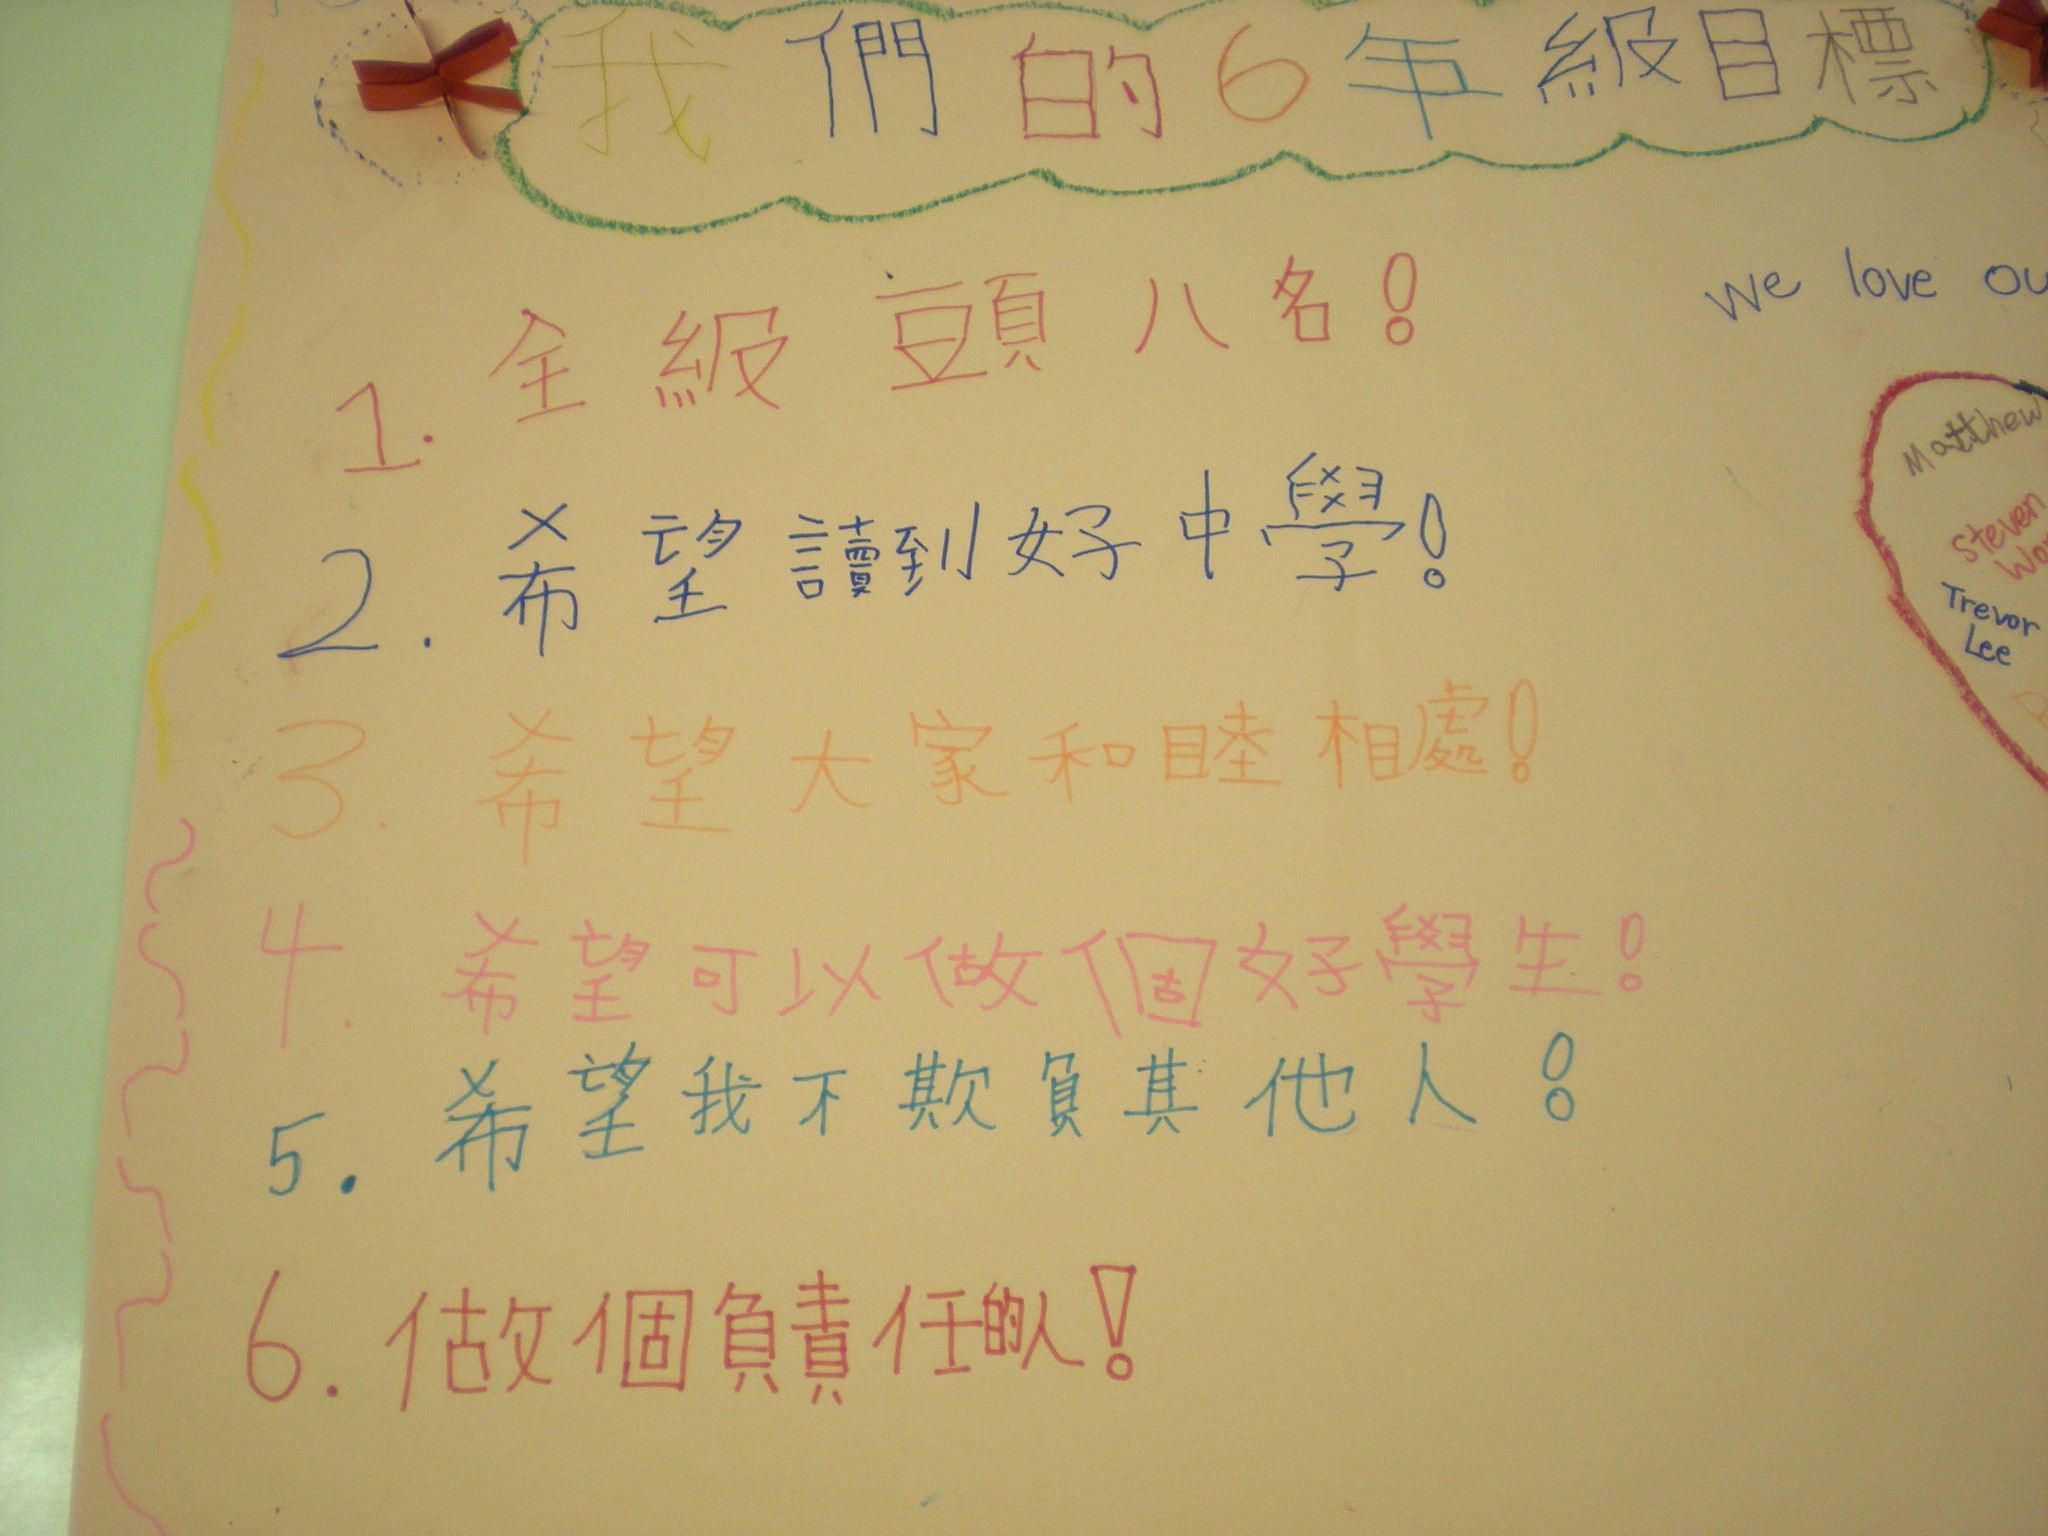 我們的6年級目標
1. 全級頭八名!
2. 希望讀到好中學!
3. 希望大家和睦相處!
4. 希望可以做個好學生!
5. 希望我不欺負其他人!
6. 做個負責任的人!
We love
Matthew
Steven
Trevor
Lee